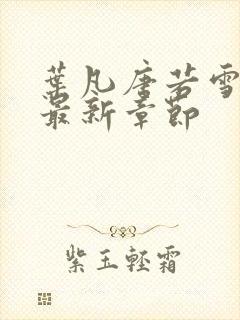 葉凡唐若雪
最新章節
紫玉輕霜